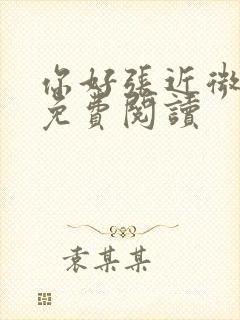 你好張近微
免費閱讀
袁某某